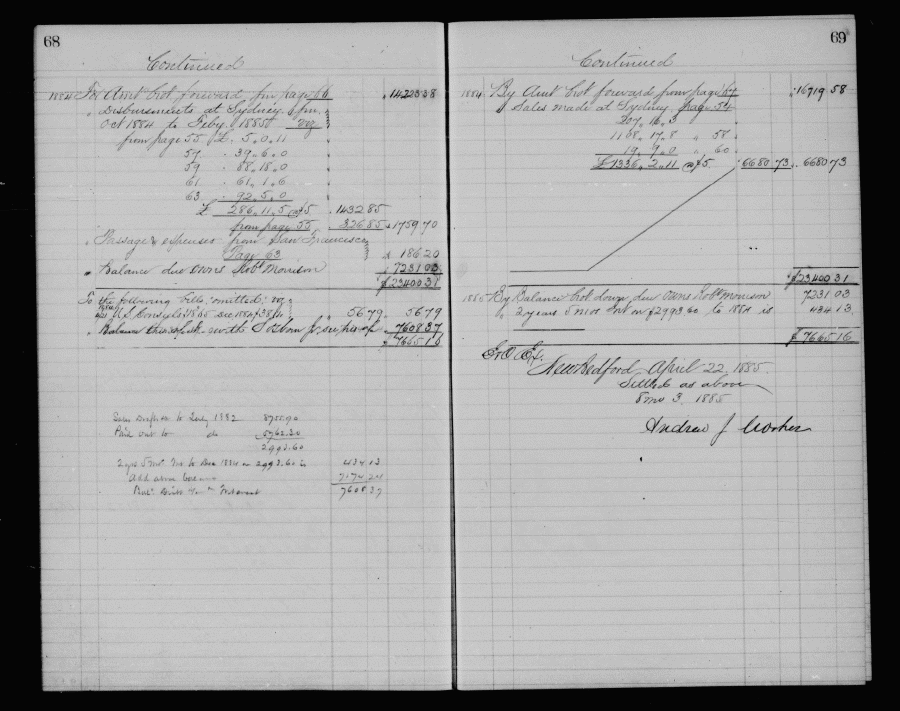 68
Continued
1884 To Amt brot forward fm page 66 14223 38
" Disbursements at Sydney fm
Oct 1884 to Feby. 1885 viz
from page 55 £ 5.0.11
57 . 39.6.0
59 . 88.18.0
61 . 61.1.6
63 . 92.5.0
£ 286.11.5 @$5 1432 85
from page 55 326 85 1759 70
" Passage & expenses from San Francisco
Page 63 186 20
" Balance due owns Robt Morrison 7231 03
$23400 31
To the following bills omitted: viz
US Consyls 1865 56 79 56 79
" Balance 7608 37
$7665 16
Sales to July 1882 8755.90
Paid out to do 5762.30
2993.60
2 yrs 5 mos Int. to Dec 1884 on 2993.60 is 434 13
Add above 7174 24
Interest 7608.37
69
Continued
1884 By Amt brot forward from page 67 16719 58
" Sales made at Sydney page 54
207.16.3
1108.17.8 " 58
19.9.0 " 60
£1336.2.11 @$5 6680 73 6680 73
$23400 31
1885 By Balance brot down due owns Robt Morrison 7231 03
" 2 years 5 mos Int on $2993 60 to 1884 is 434 13
$7665 16
E. & O. Ex.
New Bedford April 22 1885
Settled as above
8 mo 3. 1885
Andrew J